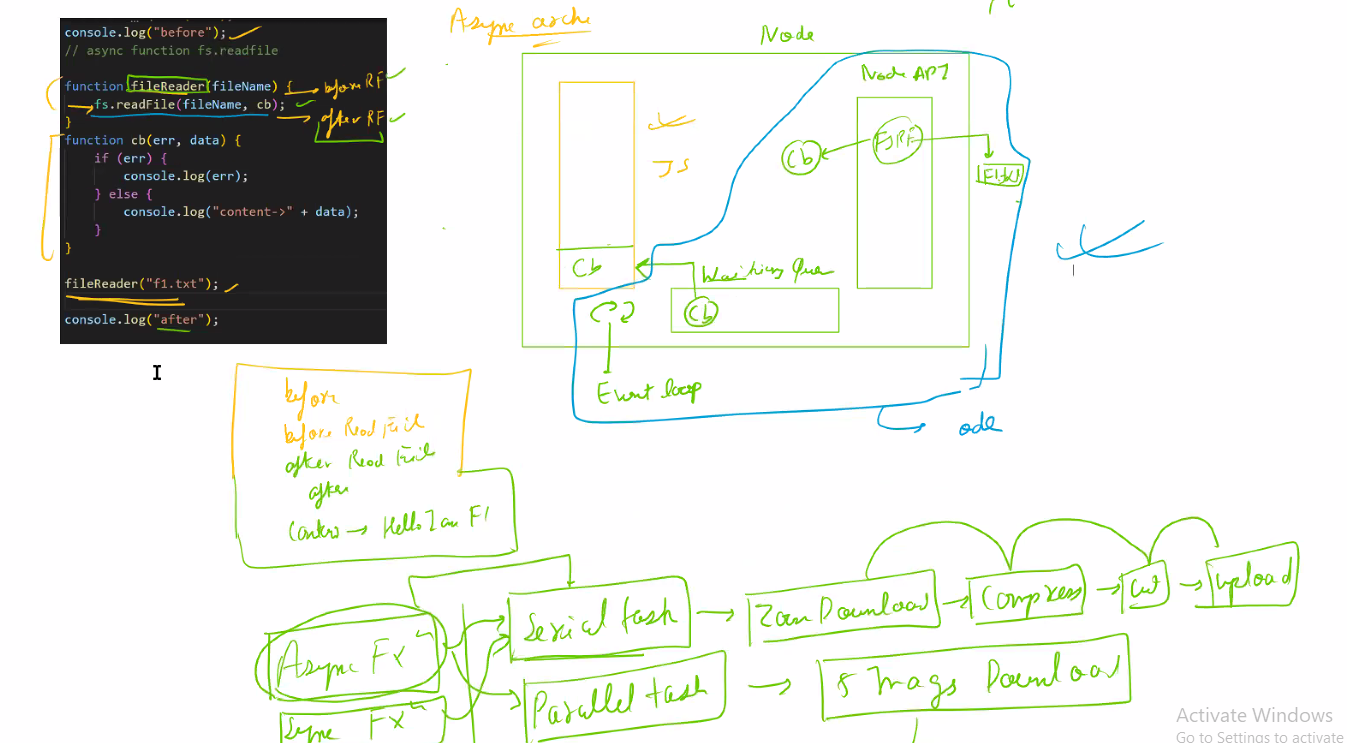 console.log("before");
// async function fs.readfile
function fileReader(fileName) {
fs.readFile(fileName, cb);
}
function cb(err, data) {
if (err) {
console.log(err);
} else {
console.log("content->" + data);
}
}
fileReader("f1.txt");
console.log("after");
before RF
after RF
Async archi
Node
Node API
JS
Cb
FSRF
Cb
Waiting Que
Cb
Event loop
ode
before
before Read File
after Read File
after
→ Hello I am F1
Async Fx
Sync Fx
Serial task
→ Zoom Download → Compress → Cut → Upload
Parallel task → 8 Imags Download
Activate Windows
Go to Settings to activate